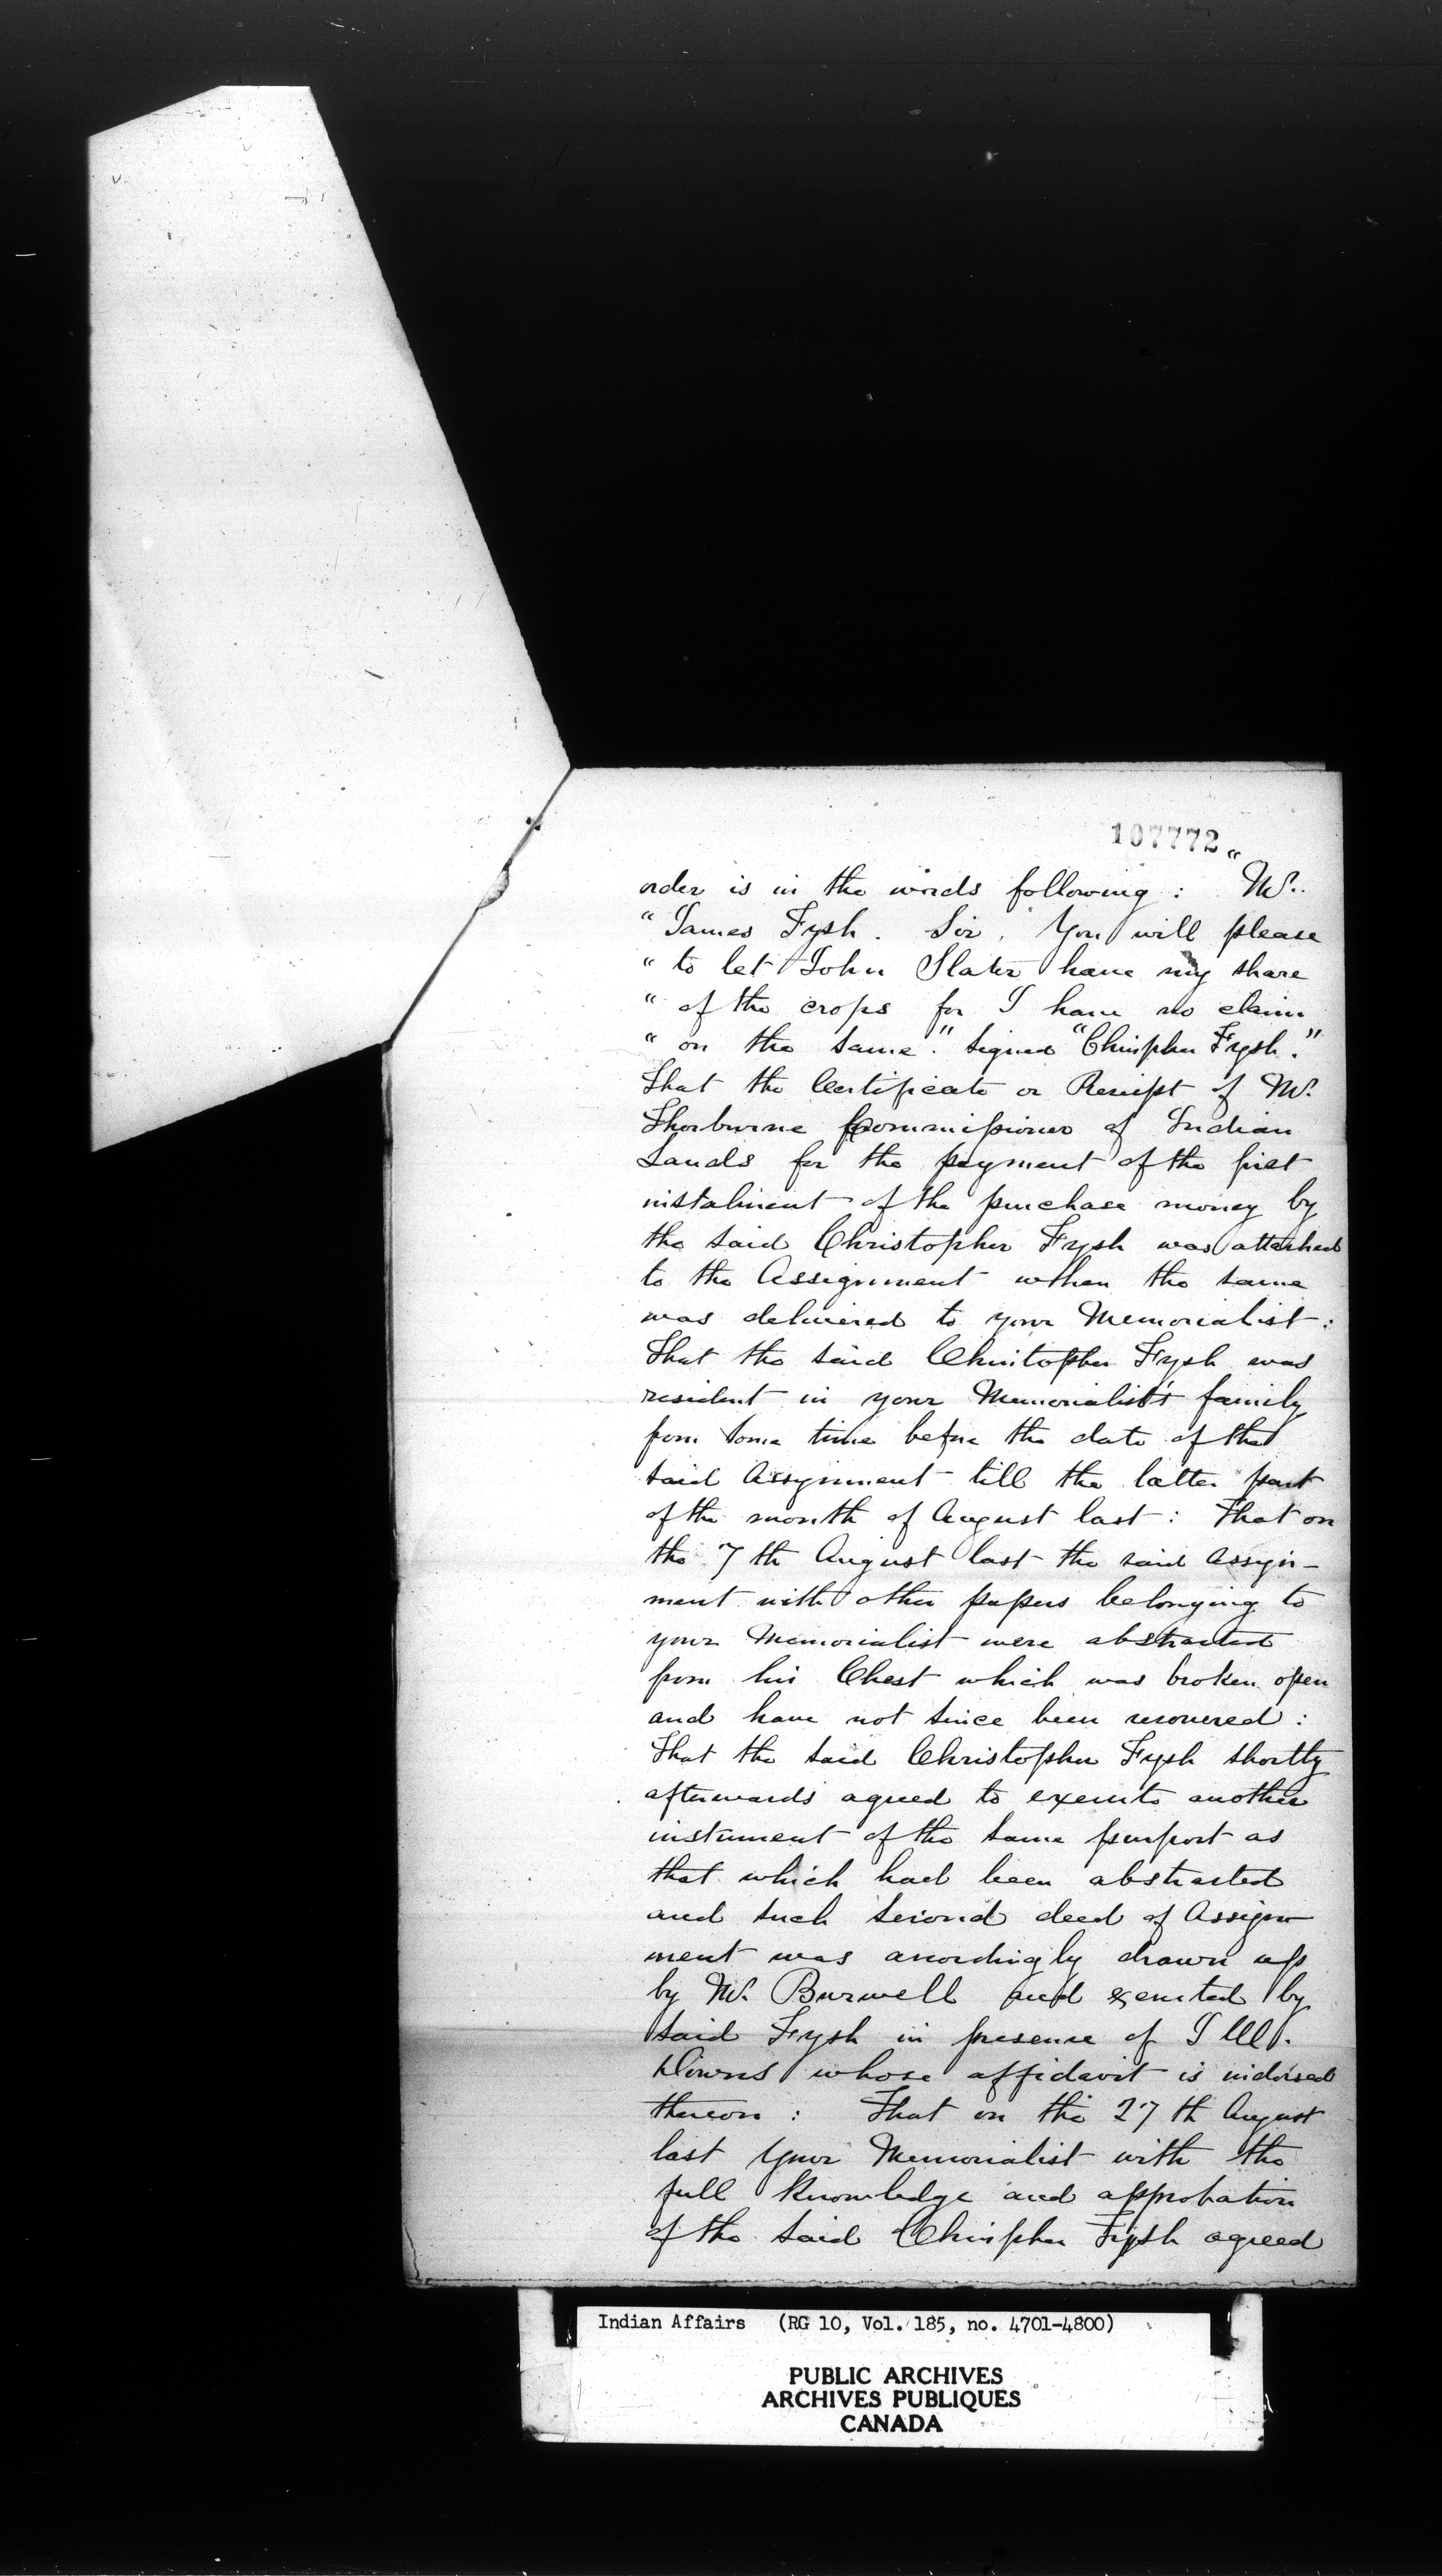 107772
order is in the words following : "Mr.
"James Fysh. Sir, You will please
"to let John Slater have my share
"of the crops for I have no claim
"on the same." Signed "Chrispher Fysh."
That the Certificate or Receipt of Mr.
Thorburne Commissioner of Indian
Lands for the payment of the first
instalment of the purchase money by
the said Christopher Fysh was attached
to the Assignment when the same
was delivered to your Memorialist :
That the said Christopher Fysh was
resident in your Memorialist's family
from some time before the date of the
said Assignment till the latter part
of the month of August last : That on
the 7th August last the said Assign-
ment with other papers belonging to
your Memorialist were abstracted
from his Chest which was broken open
and have not since been recovered :
That the said Christopher Fysh shortly
afterwards agreed to execute another
instrument of the same purport as
that which had been abstracted
and such second deed of Assign-
ment was accordingly drawn up
by Mr. Burwell and executed by
said Fysh in presence of
Downs whose affidavit is indorsed
thereon : That on the 27th August
last your Memorialist with the
full knowledge and approbation
of the said Chrispher Fysh agreed
Indian Affairs (RG 10, Vol. 185, no. 4701-4800)
PUBLIC ARCHIVES
ARCHIVES PUBLIQUES
CANADA